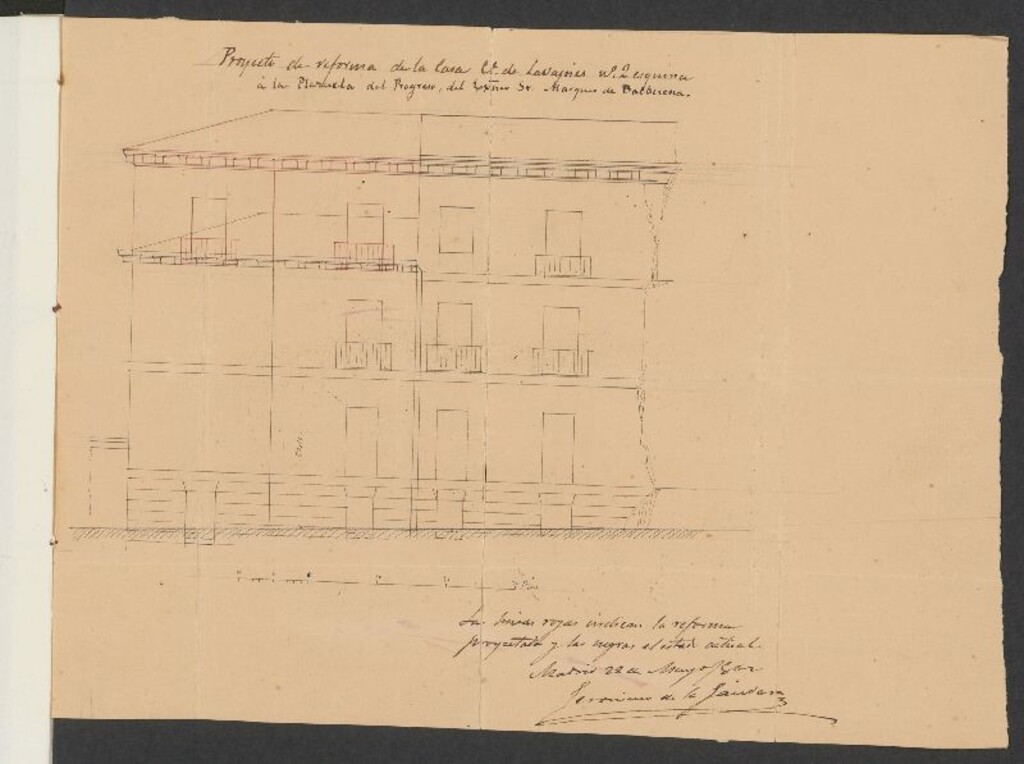 Proyecto de reforma de la Casa C.e de Lavapies nº. 2 esquina
á la Plazuela del Progreso, del Exmo Sr. Marques de Balbuena.
Las lineas rojas indican la reforma
proyectada y las negras el estado actual.
Madrid 22 de Mayo
Jeronimo de la Gándara